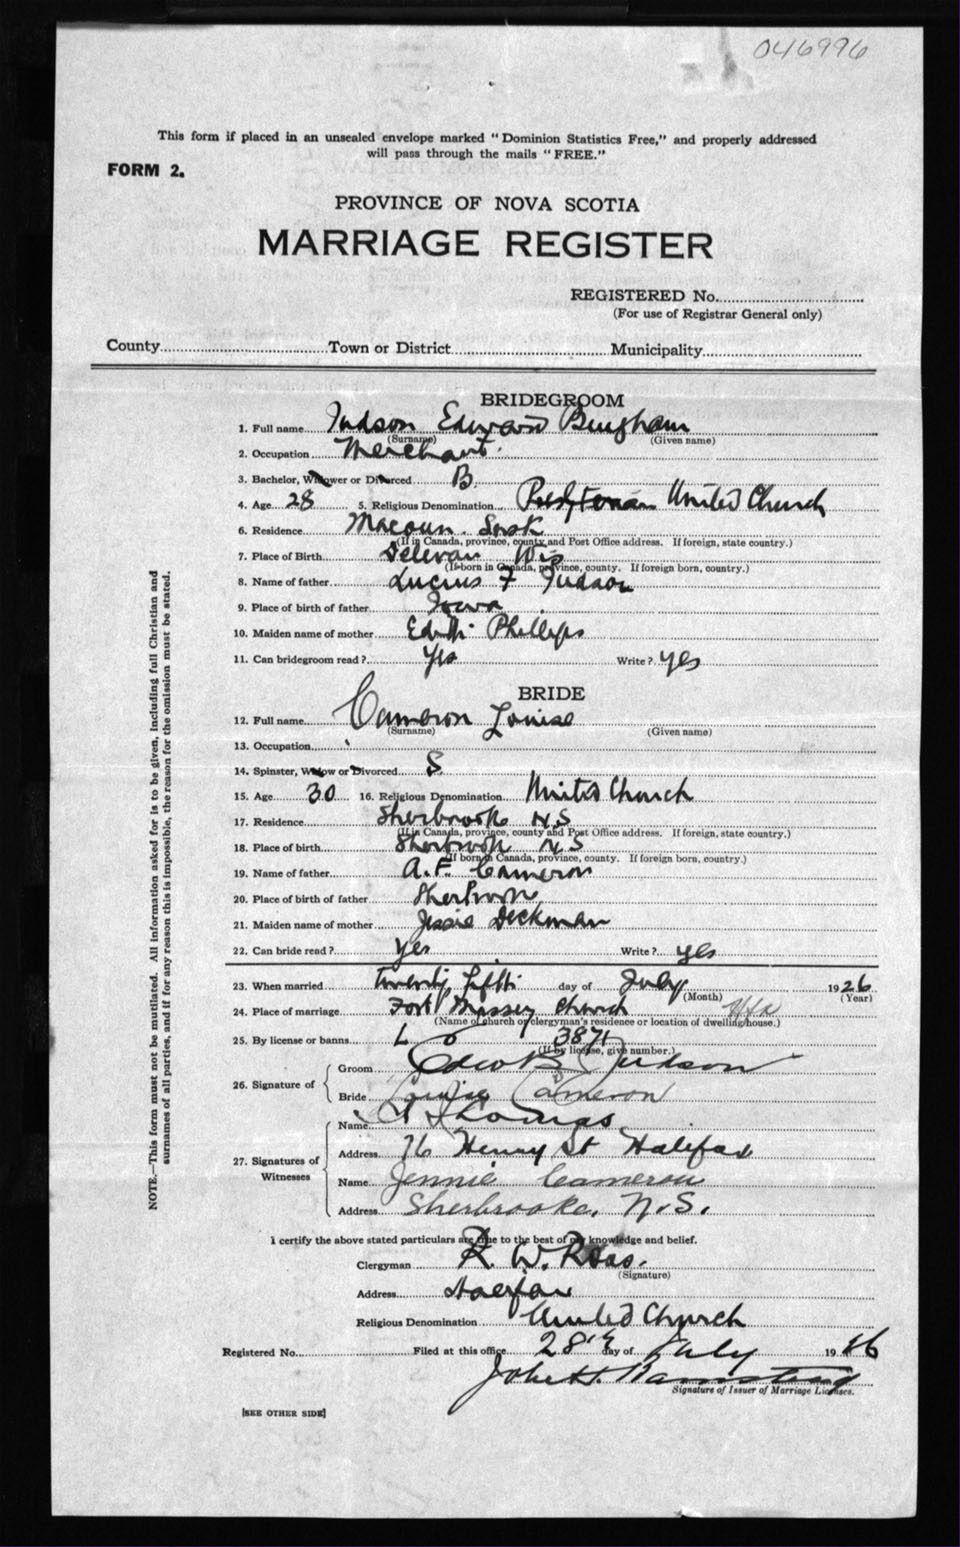 046996
This form if placed in an unsealed envelope marked "Dominion Statistics Free," and properly addressed
will pass through the mails "FREE."
FORM 2.
PROVINCE OF NOVA SCOTIA
MARRIAGE REGISTER
REGISTERED No.
(For use of Registrar General only)
County Town or District Municipality
BRIDEGROOM
1. Full name Judson Edward Bingham
(Surname) (Given name)
2. Occupation Merchant
3. Bachelor, Widower or Divorced B.
4. Age 28 5. Religious Denomination Presbyterian United Church
6. Residence Macoun Sask
(If in Canada, province, county and Post Office address. If foreign, state country.)
7. Place of Birth Delevan Wis
(If born in Canada, province, county. If foreign born, country.)
8. Name of father Lucius F Judson
9. Place of birth of father Iowa
10. Maiden name of mother Edith Phillips
11. Can bridegroom read? Yes Write? yes
BRIDE
12. Full name Cameron Louise
(Surname) (Given name)
13. Occupation
14. Spinster, Widow or Divorced S
15. Age 30 16. Religious Denomination United Church
17. Residence Sherbrooke N S
(If in Canada, province, county and Post Office address. If foreign, state country.)
18. Place of birth Sherbrook N S
(If born in Canada, province, county. If foreign born, country.)
19. Name of father A. F. Cameron
20. Place of birth of father Sherbrook
21. Maiden name of mother Jessie Dickman
22. Can bride read? Yes Write? yes
23. When married Twenty fifth day of July 1926
(Month) (Year)
24. Place of marriage Fort Massey Church Hfx
(Name of church or clergyman's residence or location of dwelling house.)
25. By license or banns L 3871
(If by license, give number.)
26. Signature of Groom Edw B Judson
Bride Louise Cameron
27. Signatures of Witnesses Name Thomas
Address 76 Henry St Halifax
Name Jennie Cameron
Address Sherbrooke, N.S.
I certify the above stated particulars are true to the best of my knowledge and belief.
Clergyman R. W. Ross.
(Signature)
Address Halifax
Religious Denomination United Church
Registered No. Filed at this office 28th day of July 1926
John H. Barnstead
Signature of Issuer of Marriage Licenses.
[SEE OTHER SIDE]
NOTE.—This form must not be mutilated. All information asked for is to be given, including full Christian and
surnames of all parties, and if for any reason this is impossible, the reason for the omission must be stated.